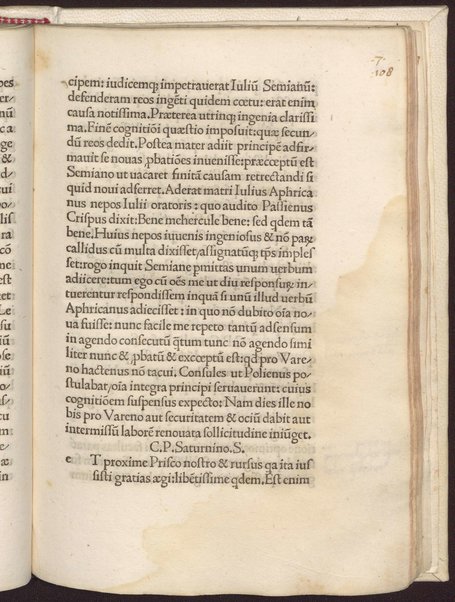 7
108
cipem: iudicemq; impetrauerat Iuliũ Semianũ:
defenderam reos ingẽti quidem cœtu: erat enim
causa notissima. Præterea utrinq; ingenia clarissi
ma. Finẽ cognitiõi quæstio imposuit: quæ secun⸗
dũ reos dedit. Postea mater adiit principẽ adfir⸗
mauit se nouas ꝓbatiões inuenisse: præceptũ est
Semiano ut uacaret finitã causam retrectandi si
quid noui adferret. Aderat matri Iulius Aphrica
nus nepos Iulii oratoris: quo audito Passienus
Crispus dixit: Bene mehercule bene: sed qdem tã
bene. Huius nepos iuuenis ingeniosus & nõ paꝝ
callidus cũ multa dixisset, assignatũq; tp̃s imples
set: rogo inquit Semiane ꝑmittas unum uerbum
adiicere: tum ego cũ oẽs me ut diu responsuꝝ in⸗
tuerentur respondissem inquã si unũ illud uerbũ
Aphricanus adiecisset: in quo nõ dubito oĩa no⸗
ua fuisse: nunc facile me repeto tantũ adsensum
in agendo consecutũ q̃tum tunc nõ agendo simi
liter nunc & ꝓbatũ & exceptũ est: qd pro Vare⸗
no hactenus nõ tacui. Consules ut Polienus po⸗
stulabat, oĩa integra principi seruauerunt: cuius
cognitiõem suspensus expecto: Nam dies ille no
bis pro Vareno aut securitatem & ociũ dabit aut
intermissũ laborẽ renouata sollicitudine iniũget.
C.P. Saturnino. S.
e T proxime Prisco nostro & rursus qa ita ius
sisti gratias ægi: libẽtissime qdem. Est enim